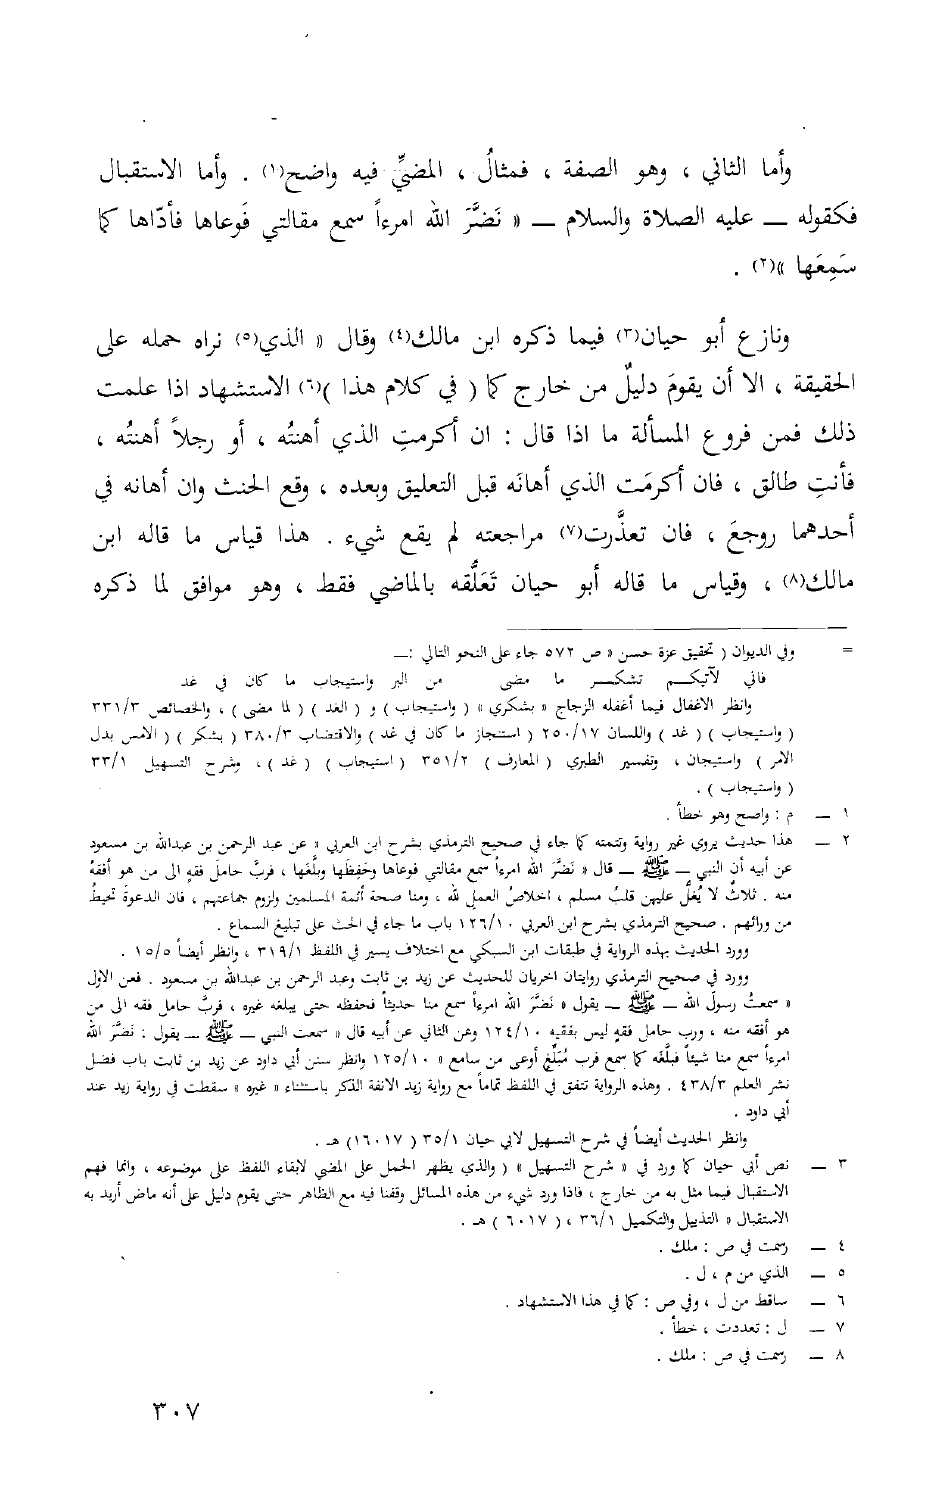 وأما الثاني ، وهو الصفة ، فمثالُ ، المضيِّ فيه واضح(١) . وأما الاستقبال
فكقوله — عليه الصلاة والسلام — « نَضَّرَ الله امرءاً سمع مقالتي فَوعاها فأدّاها كما
سَمِعَها »(٢) .
ونازع أبو حيان(٣) فيما ذكره ابن مالك(٤) وقال « الذي(٥) نراه حمله على
الحقيقة ، الا أن يقومَ دليلٌ من خارج كما ( في كلام هذا )(٦) الاستشهاد اذا علمت
ذلك فمن فروع المسألة ما اذا قال : ان أكرمتِ الذي أهنتُه ، أو رجلاً أهنتُه ،
فأنتِ طالق ، فان أكرمَت الذي أهانَه قبل التعليق وبعده ، وقع الحنث وان أهانه في
أحدهما روجعَ ، فان تعذَّرت(٧) مراجعته لم يقع شيء . هذا قياس ما قاله ابن
مالك(٨) ، وقياس ما قاله أبو حيان تَعَلُّقه بالماضي فقط ، وهو موافق لما ذكره
= وفي الديوان ( تحقيق عزة حسن « ص ٥٧٢ جاء على النحو التالي :—
فاني لآتيكم تشكر ما مضى من البر واستيجاب ما كان في غد
وانظر الاغفال فيما أغفله الزجاج « بشكري » ( واستيجاب ) و ( الغد ) ( لما مضى ) ، والخصائص ٣٣١/٣
( واستيجاب ) ( غد ) واللسان ٢٥٠/١٧ ( استنجاز ما كان في غد ) والاقتضاب ٣٨٠/٣ ( بشكر ) ( الامس بدل
الامر ) واستيجان ، وتفسير الطبري ( المعارف ) ٣٥١/٢ ( استيجاب ) ( غد ) ، وشرح التسهيل ٣٣/١
( واستيجاب ) .
١ — م : واصح وهو خطأ .
٢ — هذا حديث يروي غير رواية وتتمته كما جاء في صحيح الترمذي بشرح ابن العربي « عن عبد الرحمن بن عبدالله بن مسعود
عن أبيه أن النبي — ﷺ — قال « نَضَّرَ الله امرءاً سمع مقالتي فوعاها وحَفِظَها وبلَّغها ، فربَّ حامل فقهٍ الى من هو أفقهُ
منه . ثلاثٌ لا يُغلُّ عليهن قلبُ مسلم ، اخلاصُ العملِ لله ، ومنا صحة أئمة المسلمين ولزوم جماعتهم ، فان الدعوةَ تحيطُ
من ورائهم . صحيح الترمذي بشرح ابن العربي ١٢٦/١٠ باب ما جاء في الحث على تبليغ السماع .
وورد الحديث بهذه الرواية في طبقات ابن السبكي مع اختلاف يسير في اللفظ ٣١٩/١ ، وانظر أيضاً ١٥/٥ .
وورد في صحيح الترمذي روايتان اخريان للحديث عن زيد بن ثابت وعبد الرحمن بن عبدالله بن مسعود . فعن الاول
« سمعتُ رسولَ الله — ﷺ — يقول « نَضَّرَ الله امرءاً سمع منا حديثاً فحفظه حتى يبلغه غيره ، فربَّ حامل فقه الى من
هو أفقه منه ، ورب حامل فقهٍ ليس بفقيه ١٢٤/١٠ وعن الثاني عن أبيه قال « سمعت النبي — ﷺ — يقول : نَضَّرَ الله
امرءاً سمع منا شيئاً فبلَّغه كما سمع فرب مُبَلَّغٍ أوعى من سامع » ١٢٥/١٠ وانظر سنن أبي داود عن زيد بن ثابت باب فضل
نشر العلم ٤٣٨/٣ . وهذه الرواية تتفق في اللفظ تماماً مع رواية زيد الانفة الذكر باستثناء « غيره » سقطت في رواية زيد عند
أبي داود .
وانظر الحديث أيضاً في شرح التسهيل لابي حيان ٣٥/١ ( ٦٠١٧ ) هـ .
٣ — نص أبي حيان كما ورد في « شرح التسهيل » ( والذي يظهر الحمل على المضي لابقاء اللفظ على موضوعه ، وانما فهم
الاستقبال فيما مثل به من خارج ، فاذا ورد شيء من هذه المسائل وقفنا فيه مع الظاهر حتى يقوم دليل على أنه ماض أريد به
الاستقبال « التذييل والتكميل ٣٦/١ ، ( ٦٠١٧ ) هـ .
٤ — رسمت في ص : ملك .
٥ — الذي من م ، ل .
٦ — ساقط من ل ، وفي ص : كما في هذا الاستشهاد .
٧ — ل : تعددت ، خطأ .
٨ — رسمت في ص : ملك .
٣٠٧